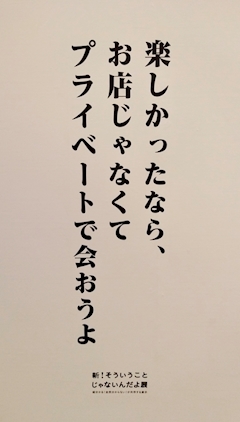 楽しかったなら、
お店じゃなくて
プライベートで会おうよ
新！そういうこと
じゃないんだよ展